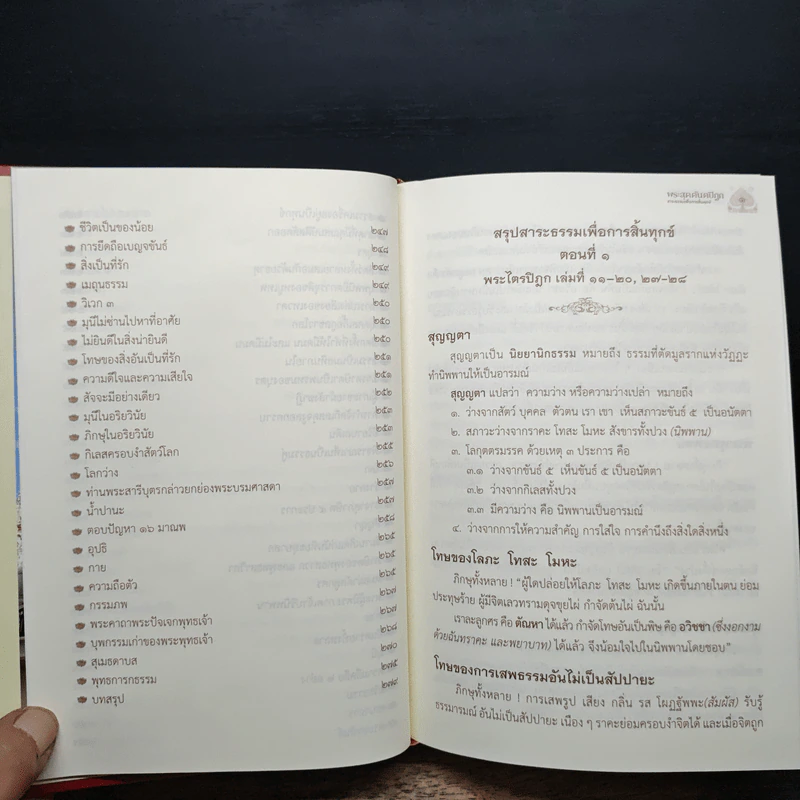 ชีวิตเป็นของน้อย ๒๔๗
การยึดถือเบญจขันธ์ ๒๔๘
สิ่งเป็นที่รัก ๒๔๙
เมถุนธรรม ๒๔๙
วิเวก ๓ ๒๕๐
มุนีไม่ซ่านไปหาที่อาศัย ๒๕๐
ไม่ยินดีในสิ่งน่ายินดี ๒๕๐
โทษของสิ่งอันเป็นที่รัก ๒๕๑
ความดีใจและความเสียใจ ๒๕๑
สัจจะมีอย่างเดียว ๒๕๒
มุนีในอริยวินัย ๒๕๓
ภิกษุในอริยวินัย ๒๕๓
กิเลสครอบงำสัตว์โลก ๒๕๕
โลกว่าง ๒๕๖
ท่านพระสารีบุตรกล่าวยกย่องพระบรมศาสดา ๒๕๗
น้ำปานะ ๒๕๗
ตอบปัญหา ๑๖ มาณพ ๒๕๘
อุปธิ ๒๖๕
กาย ๒๖๕
ความถือตัว ๒๖๕
กรรมภพ ๒๖๗
พระคาถาพระปัจเจกพุทธเจ้า ๒๖๗
บุพกรรมเก่าของพระพุทธเจ้า ๒๖๘
สุเมธดาบส ๒๗๐
พุทธการกธรรม ๒๗๕
บทสรุป ๒๗๙
พระสุตตันตปิฎก
สรุปสาระธรรมเพื่อการสิ้นทุกข์
ตอนที่ ๑
พระไตรปิฎก เล่มที่ ๑๑–๒๐, ๒๗–๒๘
สุญญตา
สุญญตาเป็น นิยยานิกธรรม หมายถึง ธรรมที่ตัดมูลรากแห่งวัฏฏะ
ทำนิพพานให้เป็นอารมณ์
สุญญตา แปลว่า ความว่าง หรือความว่างเปล่า หมายถึง
๑. ว่างจากสัตว์ บุคคล ตัวตน เรา เขา เห็นสภาวะขันธ์ ๕ เป็นอนัตตา
๒. สภาวะว่างจากราคะ โทสะ โมหะ สังขารทั้งปวง (นิพพาน)
๓. โลกุตตรมรรค ด้วยเหตุ ๓ ประการ คือ
๓.๑ ว่างจากขันธ์ ๕ เห็นขันธ์ ๕ เป็นอนัตตา
๓.๒ ว่างจากกิเลสทั้งปวง
๓.๓ มีความว่าง คือ นิพพานเป็นอารมณ์
๔. ว่างจากการให้ความสำคัญ การใส่ใจ การคำนึงถึงสิ่งใดสิ่งหนึ่ง
โทษของโลภะ โทสะ โมหะ
ภิกษุทั้งหลาย ! "ผู้ใดปล่อยให้โลภะ โทสะ โมหะ เกิดขึ้นภายในตน ย่อม
ประทุษร้าย ผู้มีจิตเลวทรามดุจขุยไผ่ กำจัดต้นไผ่ ฉันนั้น
เราละลูกศร คือ ตัณหา ได้แล้ว กำจัดโทษอันเป็นพิษ คือ อวิชชา (ซึ่งงอกงาม
ด้วยฉันทราคะ และพยาบาท) ได้แล้ว จึงน้อมใจไปในนิพพานโดยชอบ"
โทษของการเสพธรรมอันไม่เป็นสัปปายะ
ภิกษุทั้งหลาย ! การเสพรูป เสียง กลิ่น รส โผฏฐัพพะ(สัมผัส) รับรู้
ธรรมารมณ์ อันไม่เป็นสัปปายะ เนือง ๆ ราคะย่อมครอบงำจิตได้ และเมื่อจิตถูก